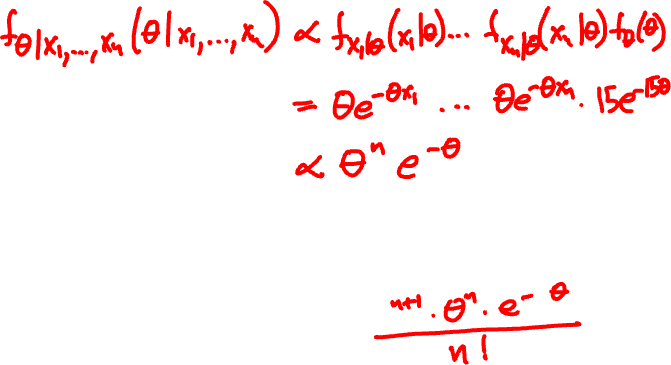 f_{θ|x₁,...,xₙ}(θ|x₁,...,xₙ) ∝ f_{x₁|θ}(x₁|θ)... f_{xₙ|θ}(xₙ|θ)f_θ(θ)
= θe^{-θx₁} ... θe^{-θxₙ} · 15e^{-15θ}
∝ θⁿ e^{-θ}
ⁿ⁺¹ · θⁿ · e^{- θ}
n!